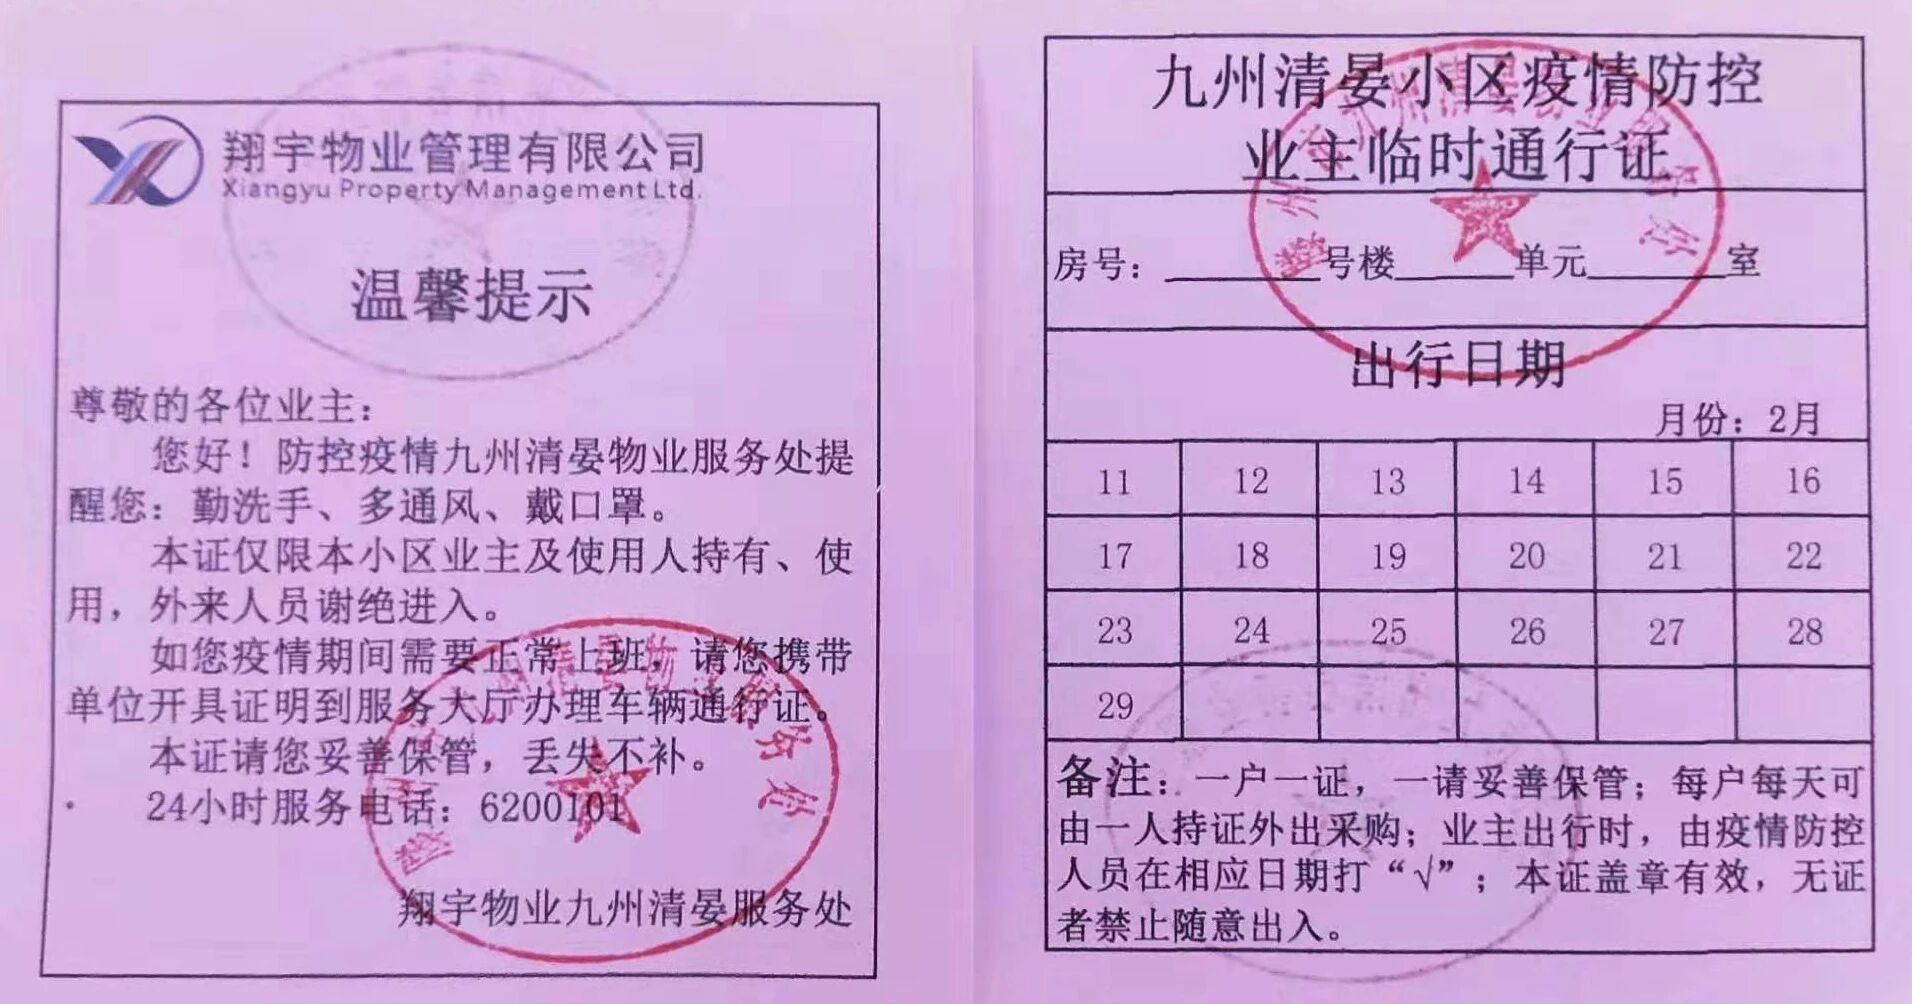 翔宇物业管理有限公司
Xiangyu Property Management Ltd.
温馨提示
尊敬的各位业主：
您好！防控疫情九州清晏物业服务处提
醒您：勤洗手、多通风、戴口罩。
本证仅限本小区业主及使用人持有、使
用，外来人员谢绝进入。
如您疫情期间需要正常上班，请您携带
单位开具证明到服务大厅办理车辆通行证。
本证请您妥善保管，丢失不补。
24小时服务电话：6200101
翔宇物业九州清晏服务处
九州清晏小区疫情防控
业主临时通行证
房号：______号楼______单元______室
出行日期
月份：2月
11 12 13 14 15 16
17 18 19 20 21 22
23 24 25 26 27 28
29
备注：一户一证，一请妥善保管；每户每天可
由一人持证外出采购；业主出行时，由疫情防控
人员在相应日期打“√”；本证盖章有效，无证
者禁止随意出入。